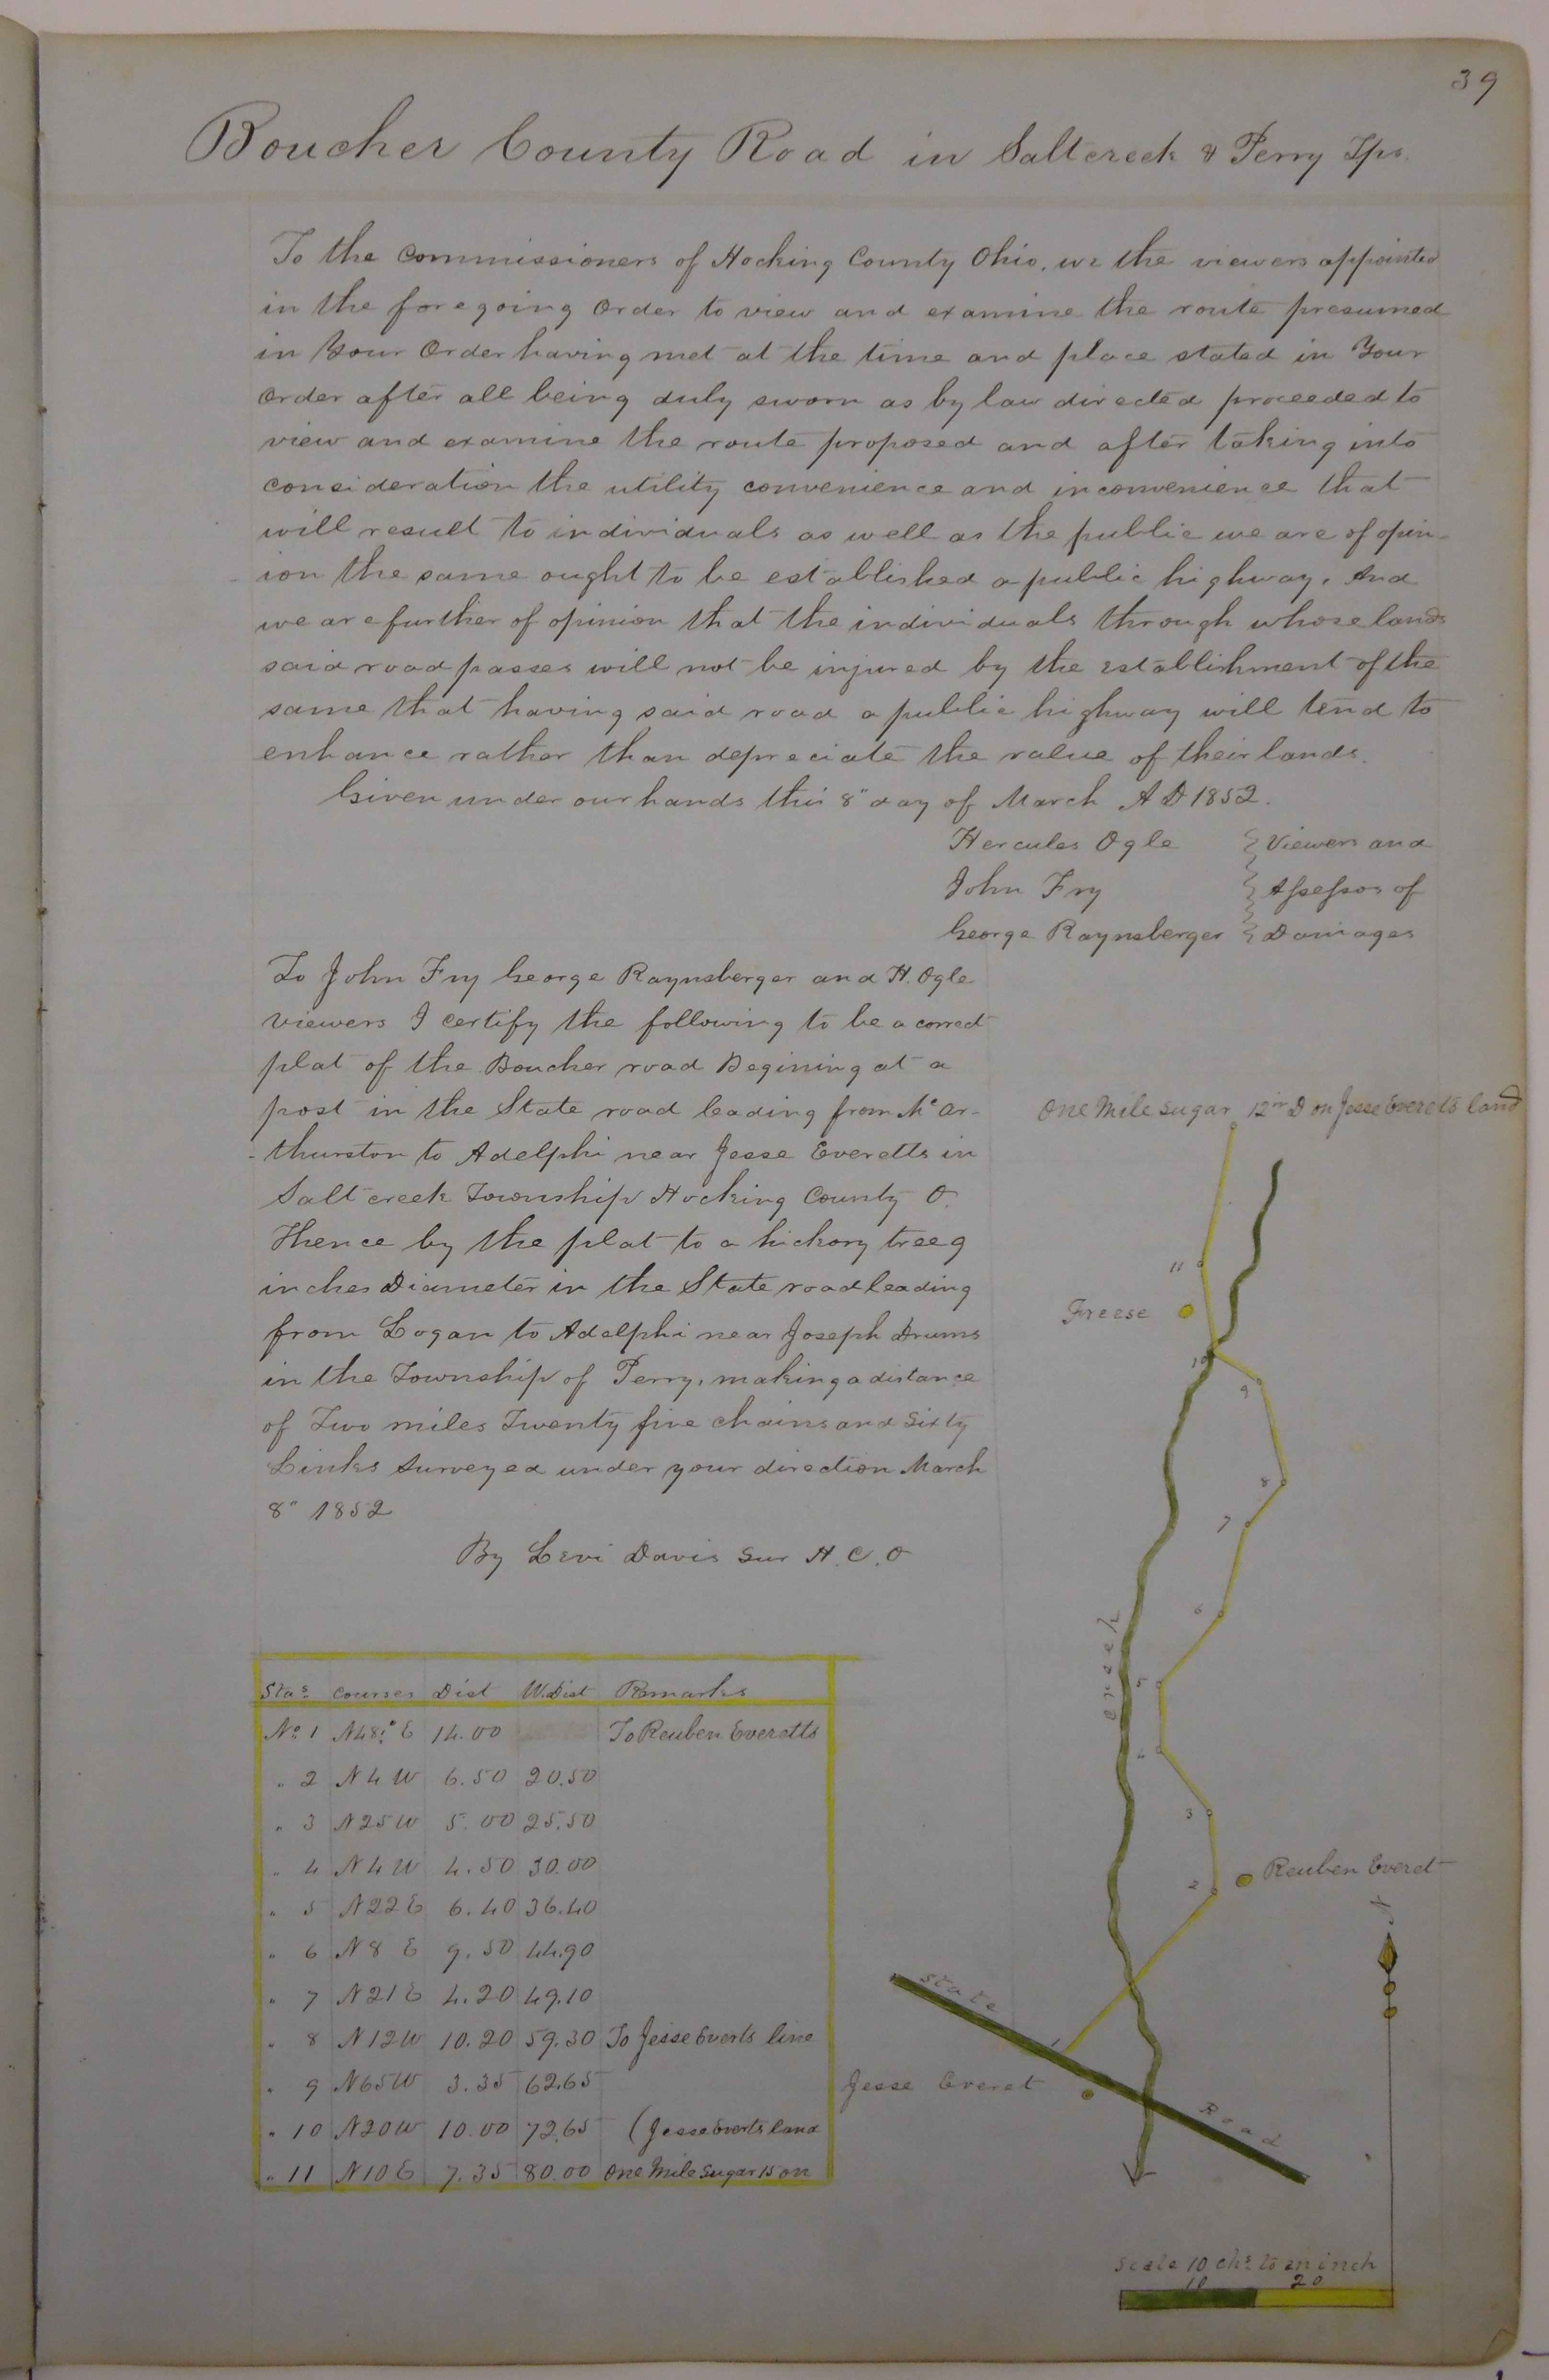 39
Boucher County Road in Saltcreek & Perry Tps.
To the Commissioners of Hocking County Ohio. we the viewers appointed
in the foregoing Order to view and examine the route presumed
in Your Order having met at the time and place stated in Your
Order after all being duly sworn as by law directed proceeded to
view and examine the route proposed and after taking into
consideration the utility convenience and inconvenience that
will result to individuals as well as the public we are of opin-
ion the same ought to be established a public highway. And
we are further of opinion that the individuals through whose lands
said road passes will not be injured by the establishment of the
same that having said road a public highway will tend to
enhance rather than depreciate the value of their lands.
Given under our hands this 8" day of March A D 1852.
Hercules Ogle } Viewers and
John Fry } Assessors of
George Raynsberger } Damages
To John Fry George Raynsberger and H. Ogle
viewers I certify the following to be a correct
plat of the Boucher road Begining at a
post in the State road leading from McAr-
thurston to Adelphi near Jesse Everetts in
Saltcreek Township Hocking County O.
Thence by the plat to a hickory tree 9
inches Diameter in the State road leading
from Logan to Adelphi near Joseph Drums
in the Township of Perry, making a distance
of Two miles Twenty five chains and Sixty
Links Surveyed under your direction March
8" 1852
By Levi Davis Sur H. C. O
Stas. Courses Dist W.Dist Remarks
No. 1 N48½° E 14.00 To Reuben Everetts
" 2 N 4 W 6.50 20.50
" 3 N25 W 5.00 25.50
" 4 N 4 W 4.50 30.00
" 5 N22 E 6.40 36.40
" 6 N 8 E 9.50 44.90
" 7 N21 E 4.20 49.10
" 8 N12 W 10.20 59.30 To Jesse Everts line
" 9 N65 W 3.35 62.65
" 10 N20 W 10.00 72.65 (Jesse Everts land
" 11 N10 E 7.35 80.00 One Mile Sugar 15 on
One Mile Sugar 12in D on Jesse Everets land
11
Freese
10
9
8
7
6
creek
5
4
3
Reuben Everet
2
N
State
1
Jesse Everet
Road
Scale 10 chs. to an inch
10 20